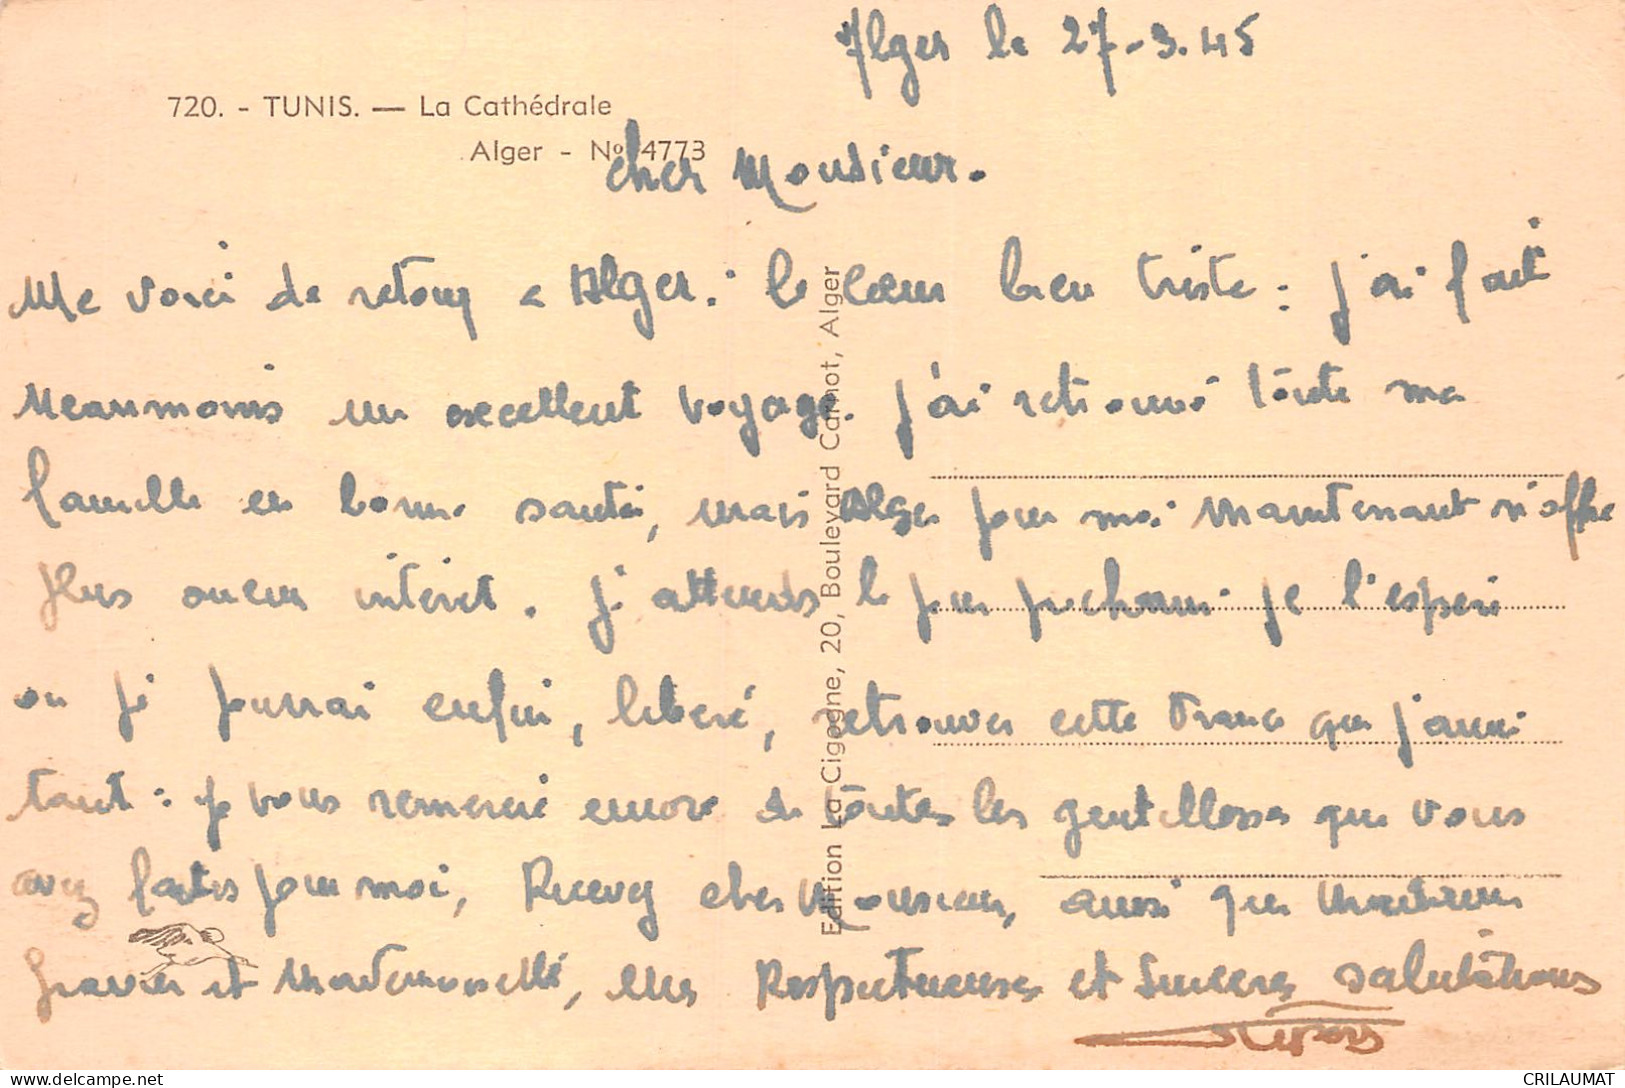 Alger le 27-3.45
720. - TUNIS. — La Cathédrale
Alger - No 4773
Cher Monsieur.
Me voici de retour a Alger. le cœur bien triste : j'ai fait
Neanmoins un excellent voyage. j'ai retrouvé toute ma
famille en bonne santé, mais Alger pour moi maintenant n'offre
plus aucun intéret. J'attends le jour prochain je l'espère
ou je pourrai enfin, libéré, retrouver cette France que j'aime
tant : je vous remercie encore de toutes les gentillesses que vous
avez faites pour moi, Recevez cher Monsieur, ainsi que Madame
Gravier et Mademoiselle, mes Respectueuses et Sincères salutations
Edition La Cigogne, 20, Boulevard Carnot, Alger
delcampe.net
CRILAUMAT